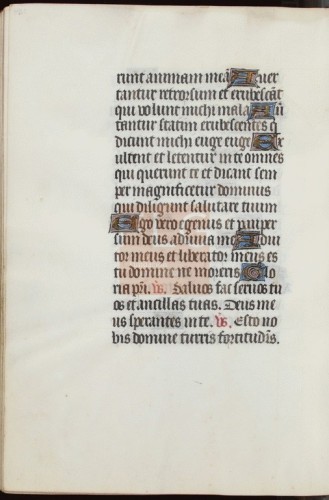 runt animam meã Auer
tantur retrorsum et erubescãt
qui volunt michi mala Auer
tantur statim erubescentes q
dicunt michi euge euge Ex
ultent et letentur in te omnes
qui querunt te et dicant sem
per magnificetur dominus
qui diligunt salutare tuum
Ego vero egenus et pauper
sum deus adiuua me Adiu
tor meus et liberator meus es
tu domine ne moreris Glo
ria pri. vs. Saluos fac seruos tu
os et ancillas tuas. Deus me
us sperantes in te. vs. Esto no
bis domine turris fortitudis.